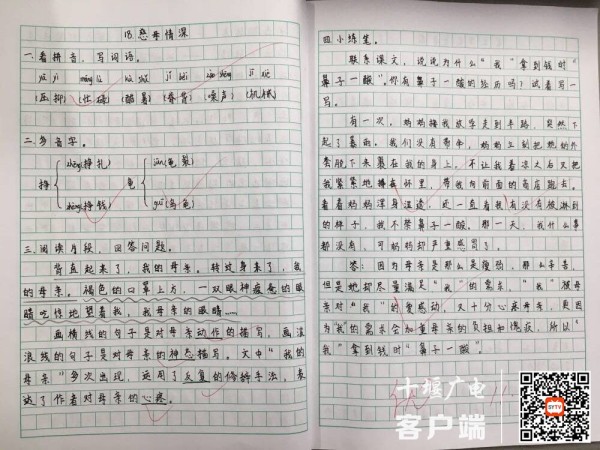 18慈母情深
一.看拼音,写词语。
(压抑)(忙碌)(酷暑)(脊背)(噪声)(机械)
二.多音字。
zhēng(挣扎) jūn(龟裂)
挣 龟
zhèng(挣钱) guī(乌龟)
三.阅读片段,回答问题。
背直起来了,我的母亲。转过身来了,我
的母亲。褐色的口罩上方,一双眼神疲惫的眼
睛吃惊地望着我,我母亲的眼睛……
画横线的句子是对母亲动作的描写,画波
浪线的句子是对母亲的神态描写。文中“我的
母亲”多次出现,运用了反复的修辞手法,表
达了作者对母亲的心疼。
四.小练笔。
联系课文,说说为什么“我”拿到钱时“
鼻子一酸”。你有鼻子一酸的经历吗?试着写一
写。
有一次,妈妈接我放学走到半路,突然下
起了暴雨。我们没有带伞,妈妈立刻把她的外
套脱下来裹在我的身上,不让我着凉,之后又把
我紧紧地搂在怀里,带我向前面的商店跑去。
看着妈妈浑身湿透,还一直看我有没有被淋到
的样子,我不禁鼻子一酸。那一天,我什么事
都没有,可妈妈却严重感冒了。
答:因为母亲是那么是瘦弱,那么辛苦,
但是她却尽量满足“我”的需求,“我”被母
亲对“我”的爱感动,又十分心疼母亲,更因
为我的需求会加重母亲的负担而愧疚,所以“
我”拿到钱时“鼻子一酸”。
优
十堰广电
客户端
SYTV